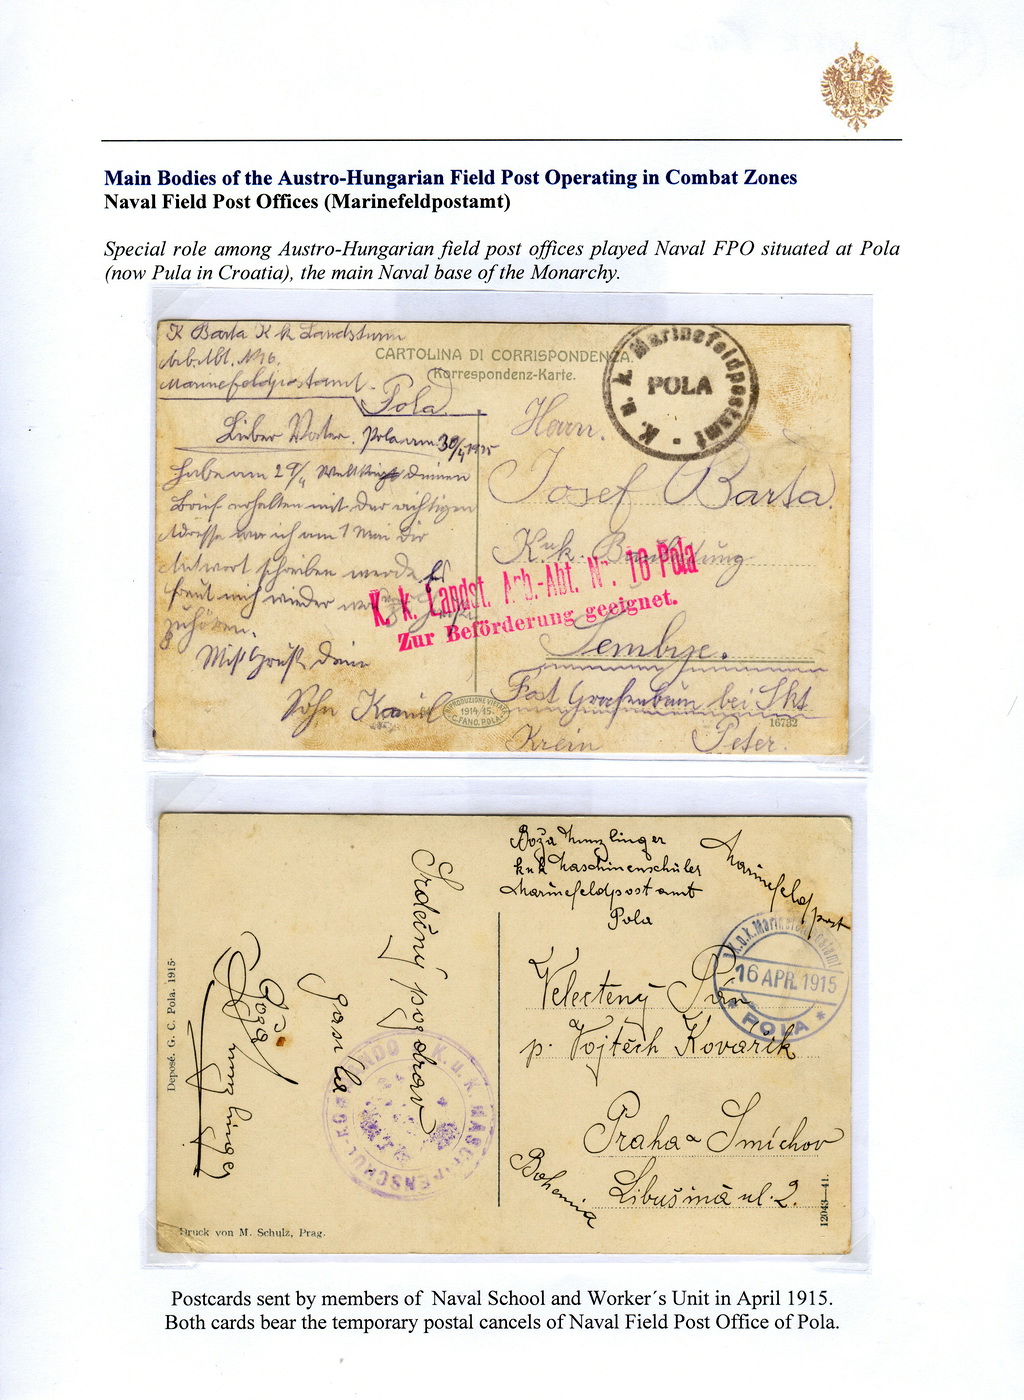 Main Bodies of the Austro-Hungarian Field Post Operating in Combat Zones
Naval Field Post Offices (Marinefeldpostamt)
Special role among Austro-Hungarian field post offices played Naval FPO situated at Pola
(now Pula in Croatia), the main Naval base of the Monarchy.
K Barta K k Landsturm
Arb. Abt. N 16.
Marinefeldpostamt.
Pola
CARTOLINA DI CORRISPONDENZA.
Korrespondenz-Karte.
K. u. k. Marinefeldpostamt
POLA
Lieber Vater. Pola am 30/4 1915
Habe am 29/4 deinen
Brief erhalten mit der richtigen
Adresse
Antwort schreiben werde
freut mich wieder
zuhören.
Mit Gruß dein
Sohn Kamil
Herrn.
Josef Barta.
K.u.k.
K. k. Landst. Arb.-Abt. Nr. 16 Pola
Zur Beförderung geeignet.
Sembije.
Post Grafenbrun bei Skt
Krain Peter.
RIPRODUZIONE VIETATA
1914/15.
C. FANO, POLA
16732
Boža Munzlinger
kuk Maschinenschüler
Marinefeldpostamt
Pola
Marinefeldpost
K.u.k. Marinefeldpostamt
16 APR. 1915
* POLA *
Velectený Pán
p. Vojtěch Kovařík
Praha Smíchov
Libušina ul. 2.
Bohemia
12043—41.
Srdečný pozdrav
Boža
Munzlinger
K. u. K. MASCHINENSCHUL-KOMMANDO
Deposé. G. C. Pola. 1915.
Druck von M. Schulz, Prag.
Postcards sent by members of Naval School and Worker´s Unit in April 1915.
Both cards bear the temporary postal cancels of Naval Field Post Office of Pola.